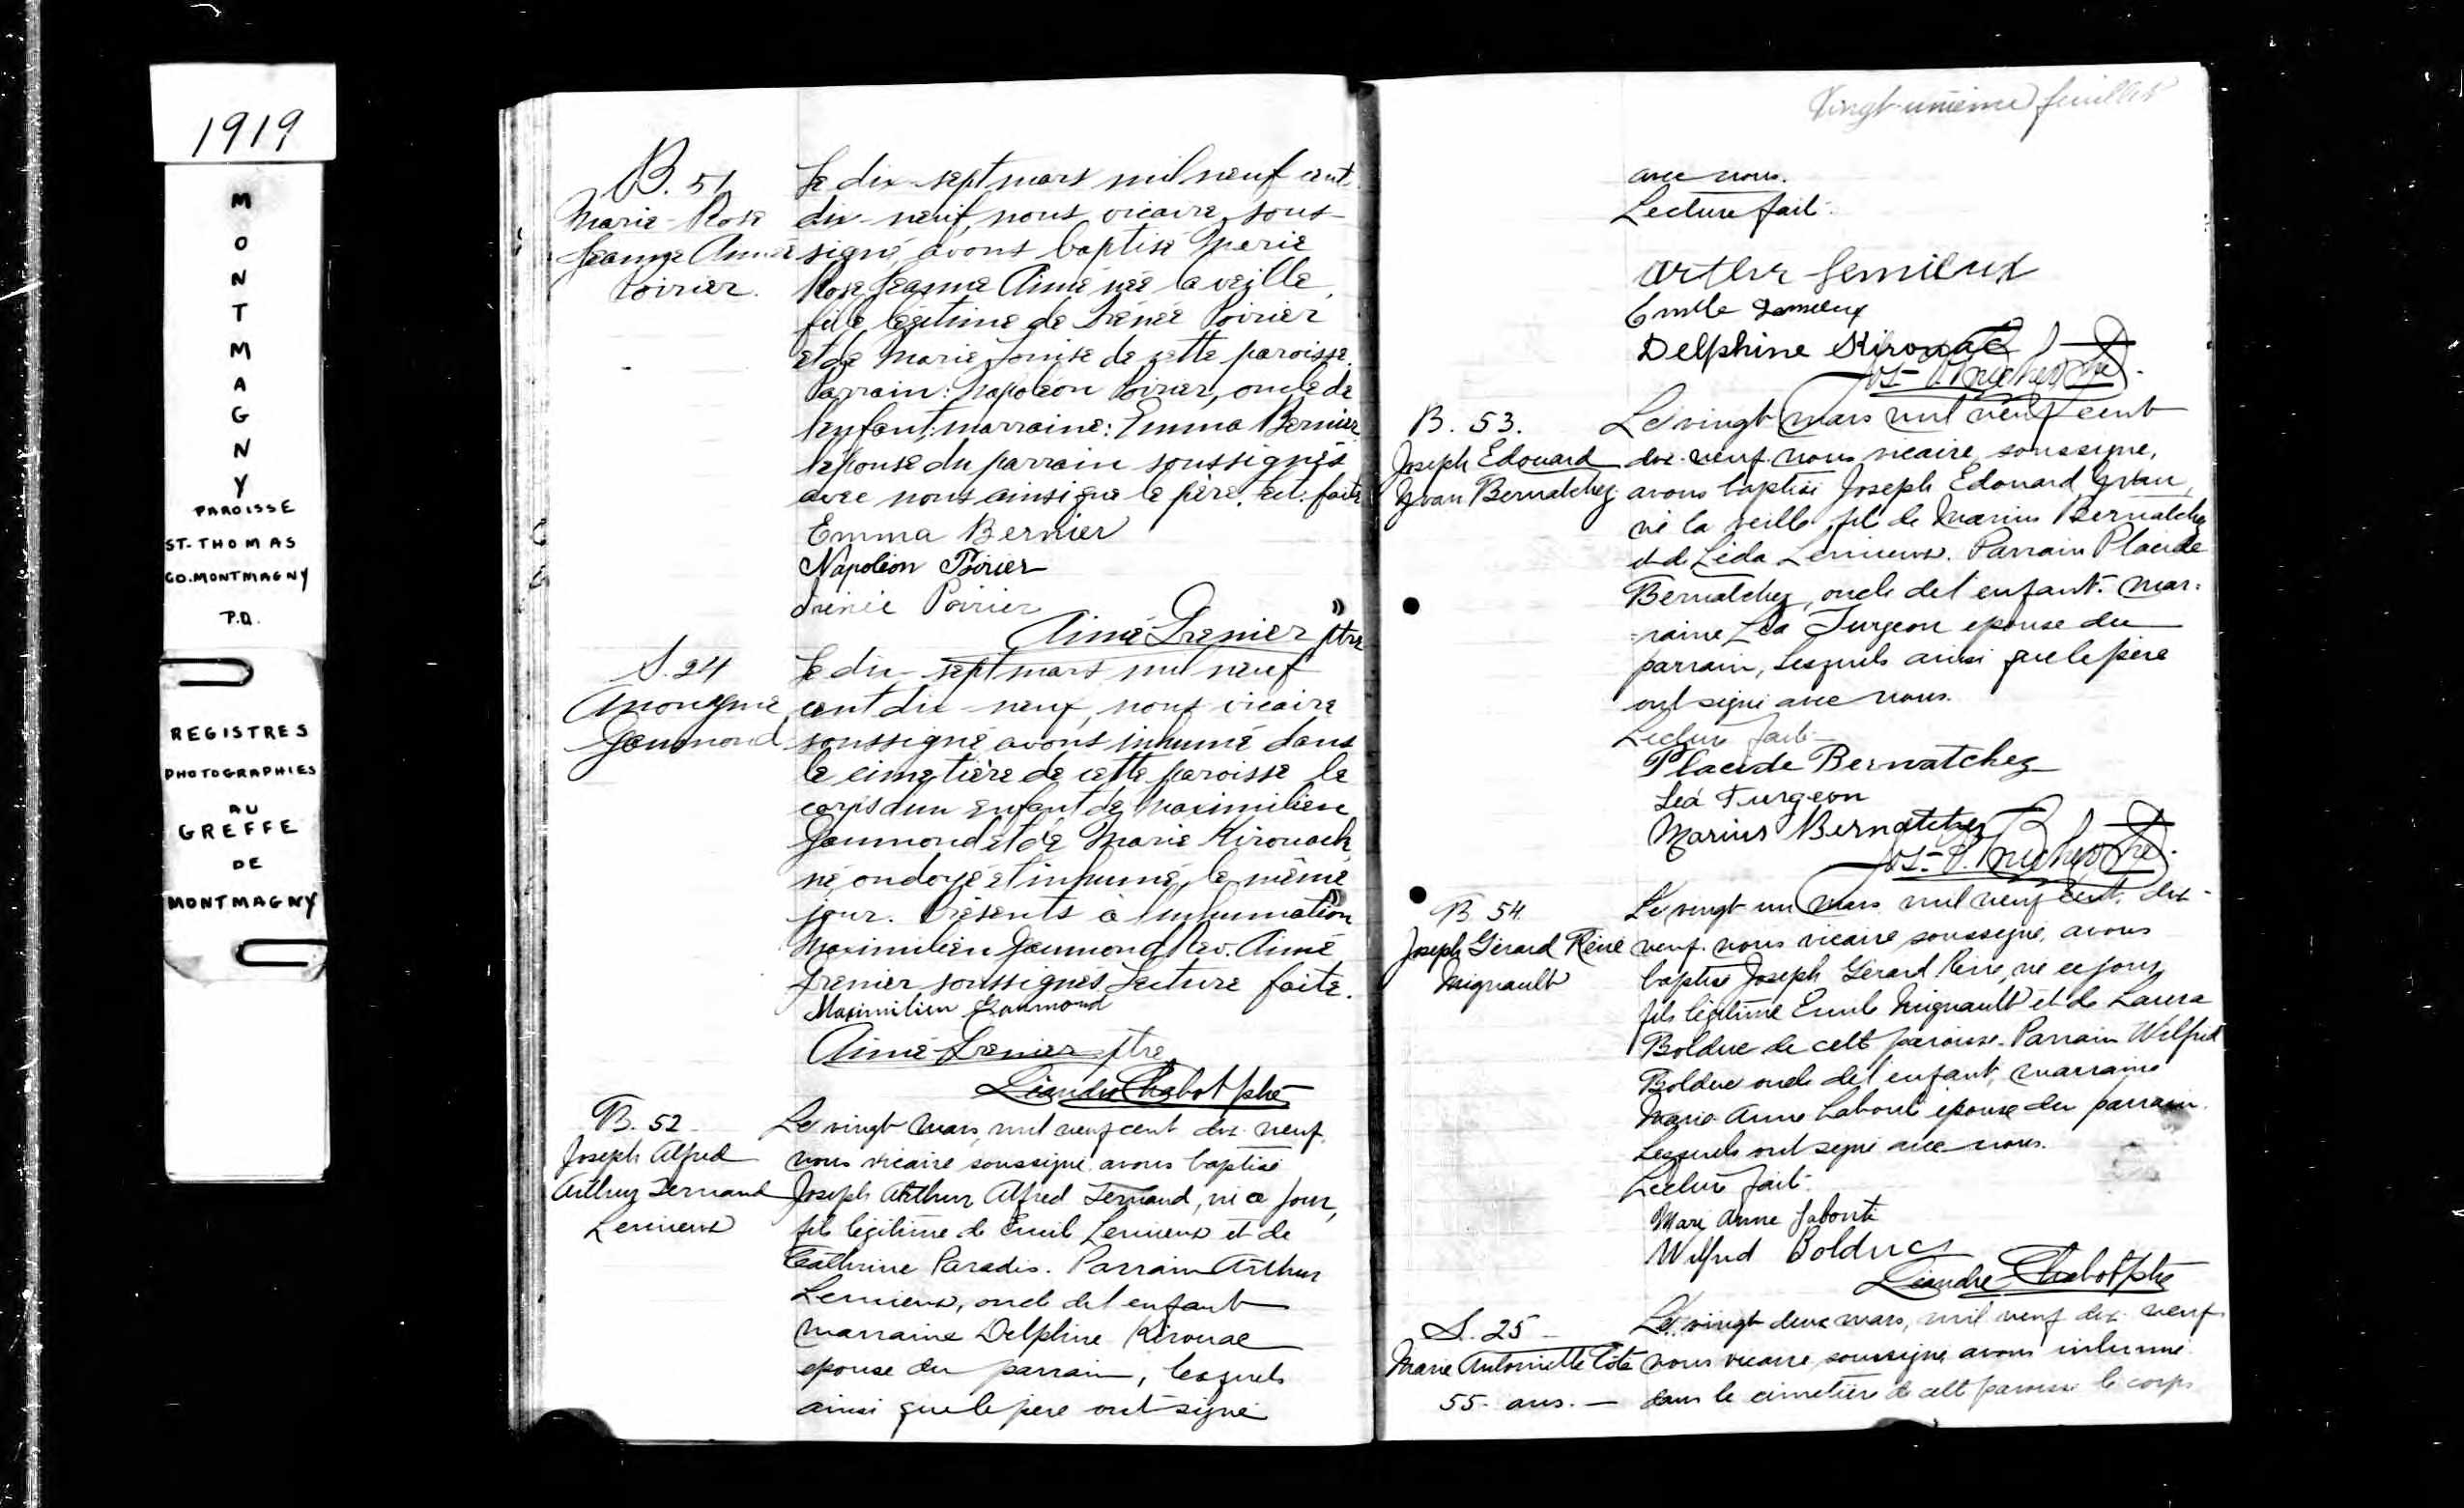 1919
MONTMAGNY
PAROISSE
ST-THOMAS
CO. MONTMAGNY
P.Q.
REGISTRES
PHOTOGRAPHIES
AU
GREFFE
DE
MONTMAGNY
B. 51
Marie-Rose
Jeanne Aimée
Poirier.
Le dix-sept mars mil neuf cent
dix-neuf, nous vicaire sous-
signé, avons baptisé Marie
Rose Jeanne Aimée née la veille,
fille légitime de Irénée Poirier
et de Marie Louise de cette paroisse.
Parrain: Napoléon Poirier, oncle de
l'enfant; marraine: Emma Bernier
épouse du parrain soussignés
avec nous ainsi que le père. Lect. faite
Emma Bernier
Napoléon Poirier
Irénée Poirier
Aimé Grenier ptre
S. 24
Anonyme
Gaumond
Le dix-sept mars mil neuf
cent dix-neuf, nous vicaire
soussigné avons inhumé dans
le cimetière de cette paroisse le
corps d'un enfant de Maximilien
Gaumond et de Marie Kirouack
né, ondoyé et inhumé le même
jour. Présents à l'inhumation
Maximilien Gaumond, Rev. Aimé
Grenier soussignés. Lecture faite.
Maximilien Gaumond
Aimé Grenier ptre
Léandre Chabot ptre
B. 52
Joseph Alfred
Arthur Fernand
Lemieux
Le vingt mars, mil neuf cent dix-neuf,
nous vicaire soussigné avons baptisé
Joseph Arthur Alfred Fernand, né ce jour,
fils légitime de Emile Lemieux et de
Cathrine Paradis. Parrain Arthur
Lemieux, oncle de l'enfant
marraine Delphine Kirouac
epouse du parrain, lesquels
ainsi que le père ont signé
Vingt-unième feuillet
avec nous.
Lecture fait.
Arthur Lemieux
Emile Lemieux
Delphine Kirouac
B. 53.
Joseph Edouard
Yvan Bernatchez
Le vingt mars mil neuf cent
dix-neuf nous vicaire soussigné,
avons baptisé Joseph Edouard Yvan,
né la veille, fils de Marius Bernatchez
et de Léda Lemieux. Parrain Placide
Bernatchez, oncle de l'enfant. Mar=
=raine Léa Turgeon epouse du
parrain, lesquels ainsi que le père
ont signé avec nous.
Lecture faite
Placide Bernatchez
Léa Turgeon
Marius Bernatchez
B. 54.
Joseph Gérard Réné
Mignault
Le vingt un mars mil neuf cent dix-
neuf. nous vicaire soussigné, avons
baptisé Joseph Gérard Réné, né ce jour
fils légitime Emile Mignault et de Laura
Bolduc de cett paroisse. Parrain Wilfrid
Bolduc oncle de l'enfant, marraine
Marie Anne Labonté épouse du parrain.
Lesquels ont signé avec nous.
Lecture fait.
Marie Anne Labonté
Wilfrid Bolduc
Léandre Chabot ptre
S. 25
Marie Antoinette Côté
55 ans.
Le vingt deux mars, mil neuf dix-neuf
nous vicaire soussigné avons inhumé
dans le cimetière de cett paroisse le corps